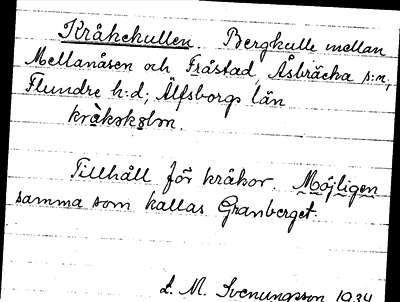 Kråkekullen. Bergkulle mellan
Mellanåsen och Fråstad, Åsbräcka s:n,
Flundre h:d; Älfsborgs län
kråkəkɵlın.
Tillhåll för kråkor. Möjligen
samma som kallas Granberget.
L. M. Svenungsson 1934